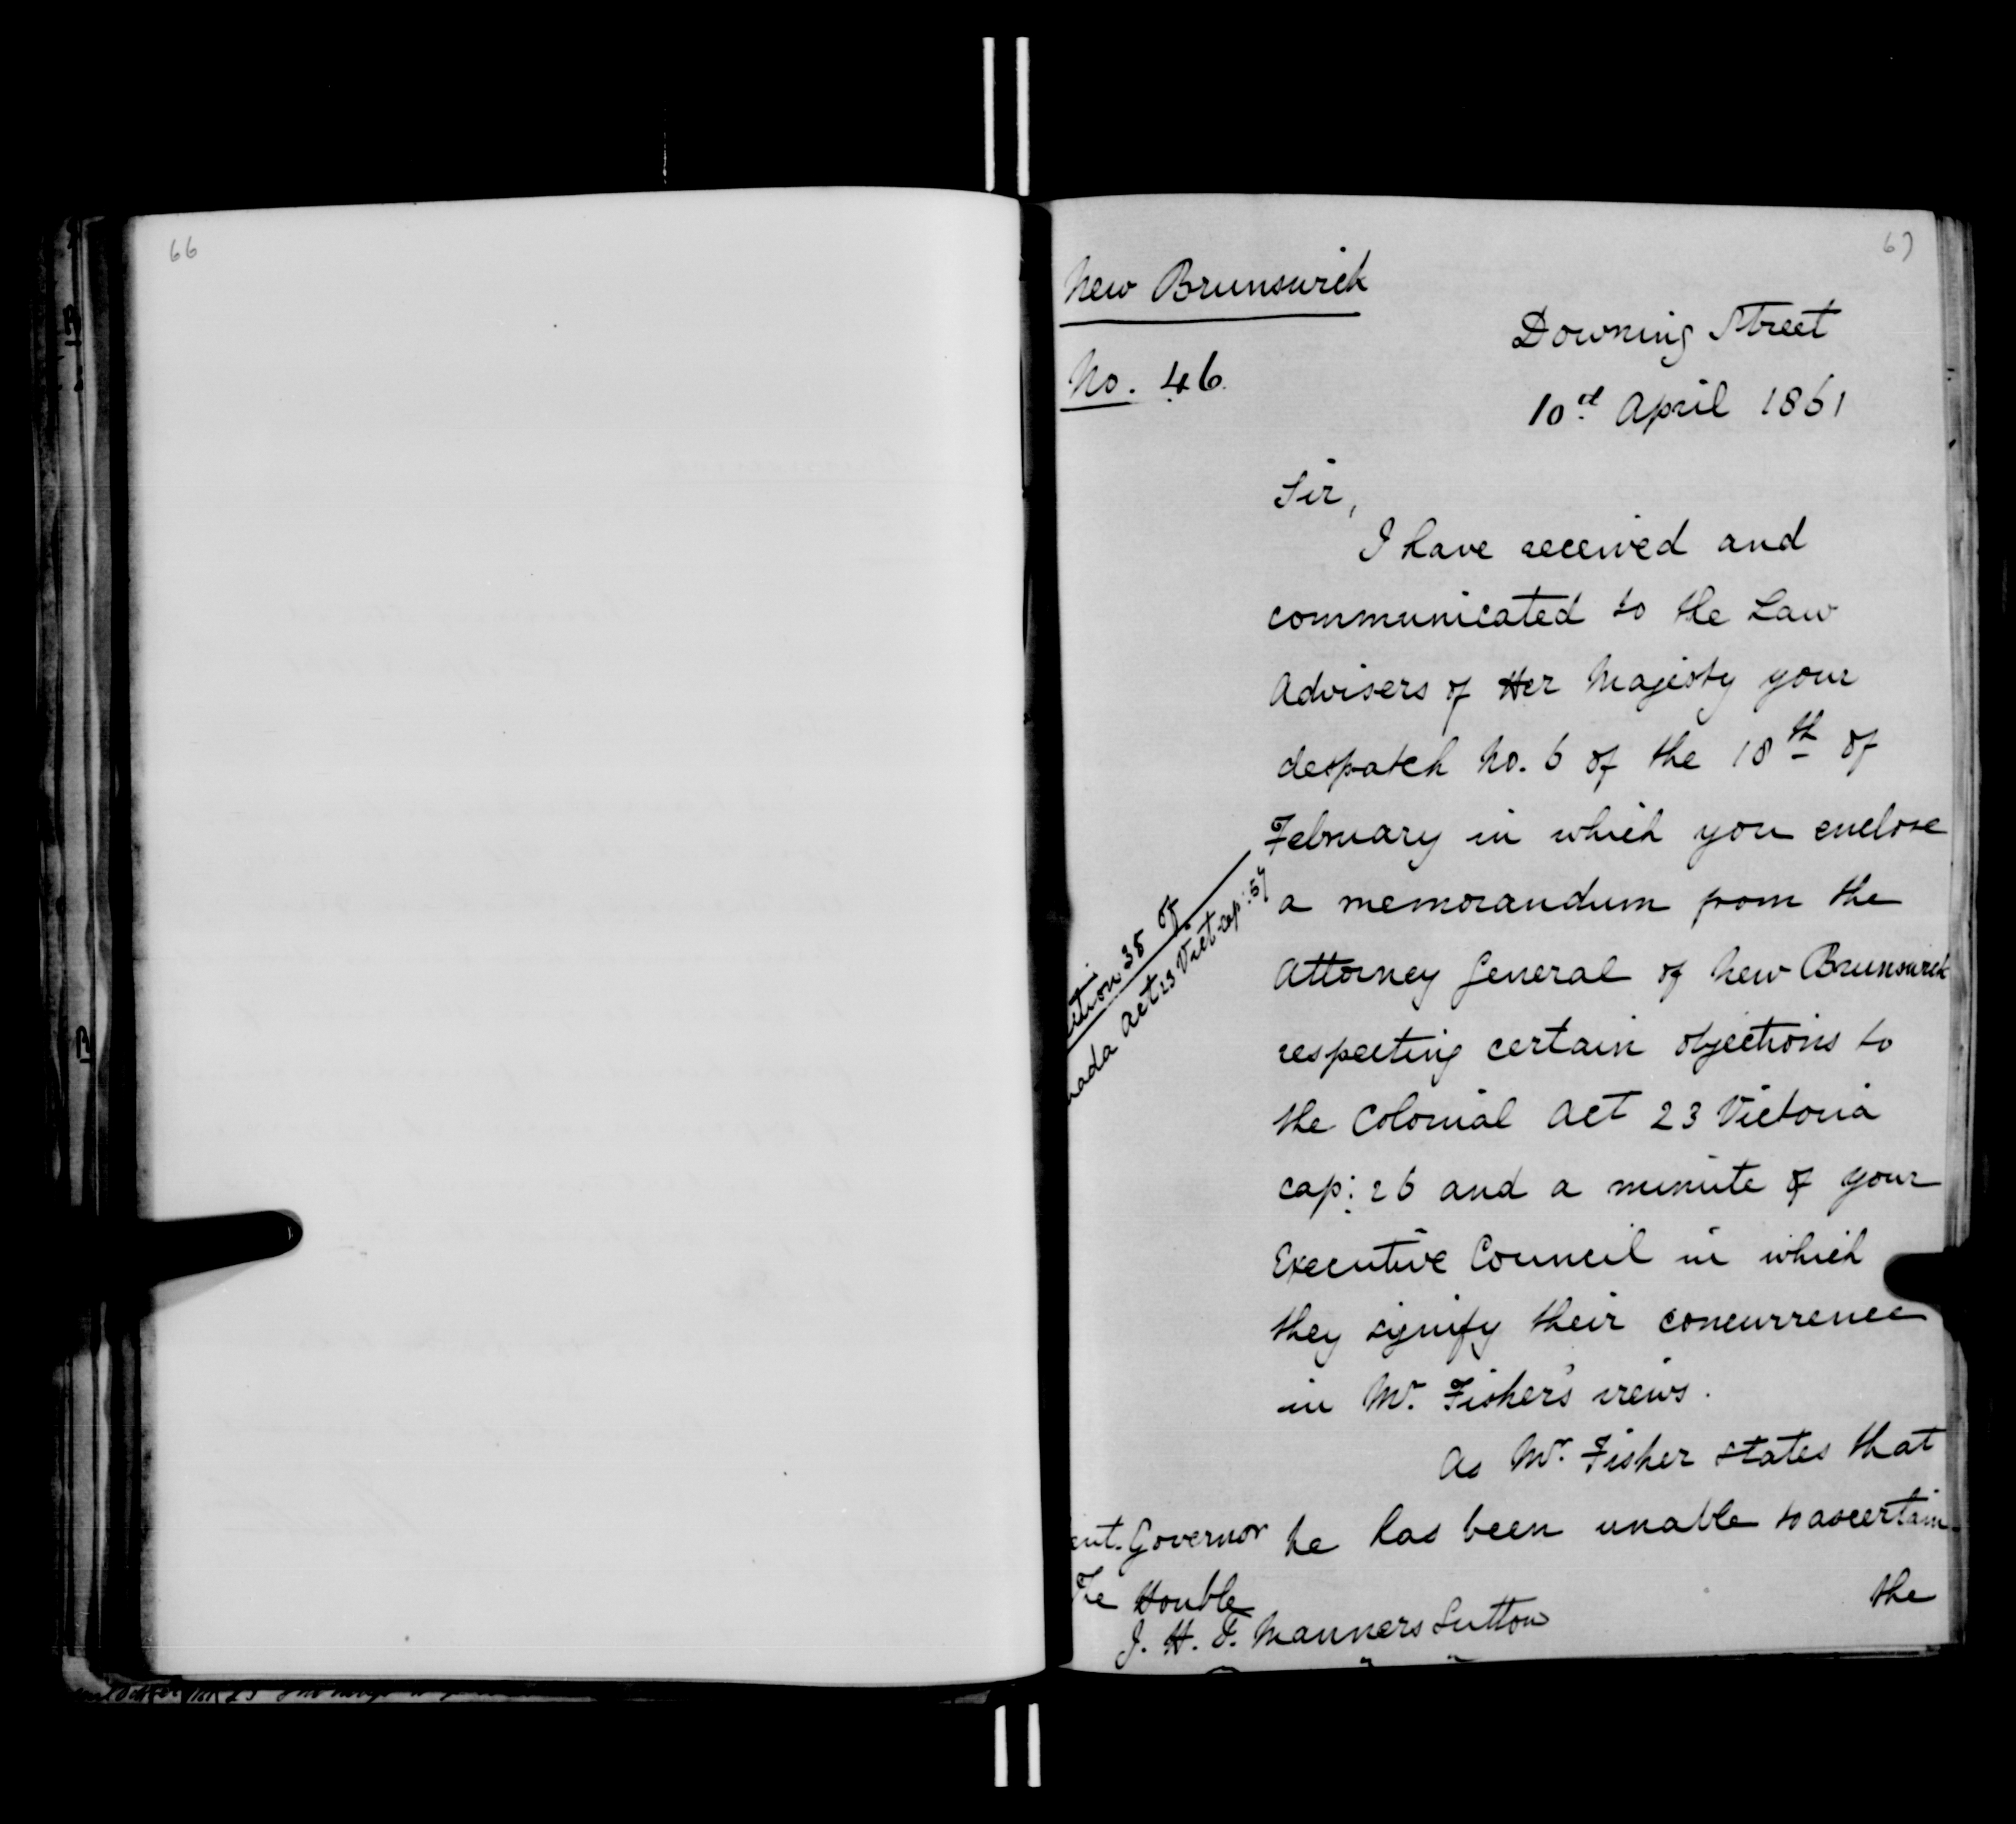 66
67
New Brunswick
No. 46.
Downing Street
10th April 1861
Sir,
I have received and
communicated to the Law
Advisers of Her Majesty your
despatch No. 6 of the 18th of
February in which you enclose
a memorandum from the
Attorney General of New Brunswick
respecting certain objections to
the Colonial Act 23 Victoria
cap: 26 and a minute of your
Executive Council in which
they signify their concurrence
in Mr. Fisher's views.
As Mr. Fisher states that
he has been unable to ascertain
the
ction 38 of
nada Act 23 Vict cap: 57
ut. Governor
The Honble
J. H. T. Manners Sutton